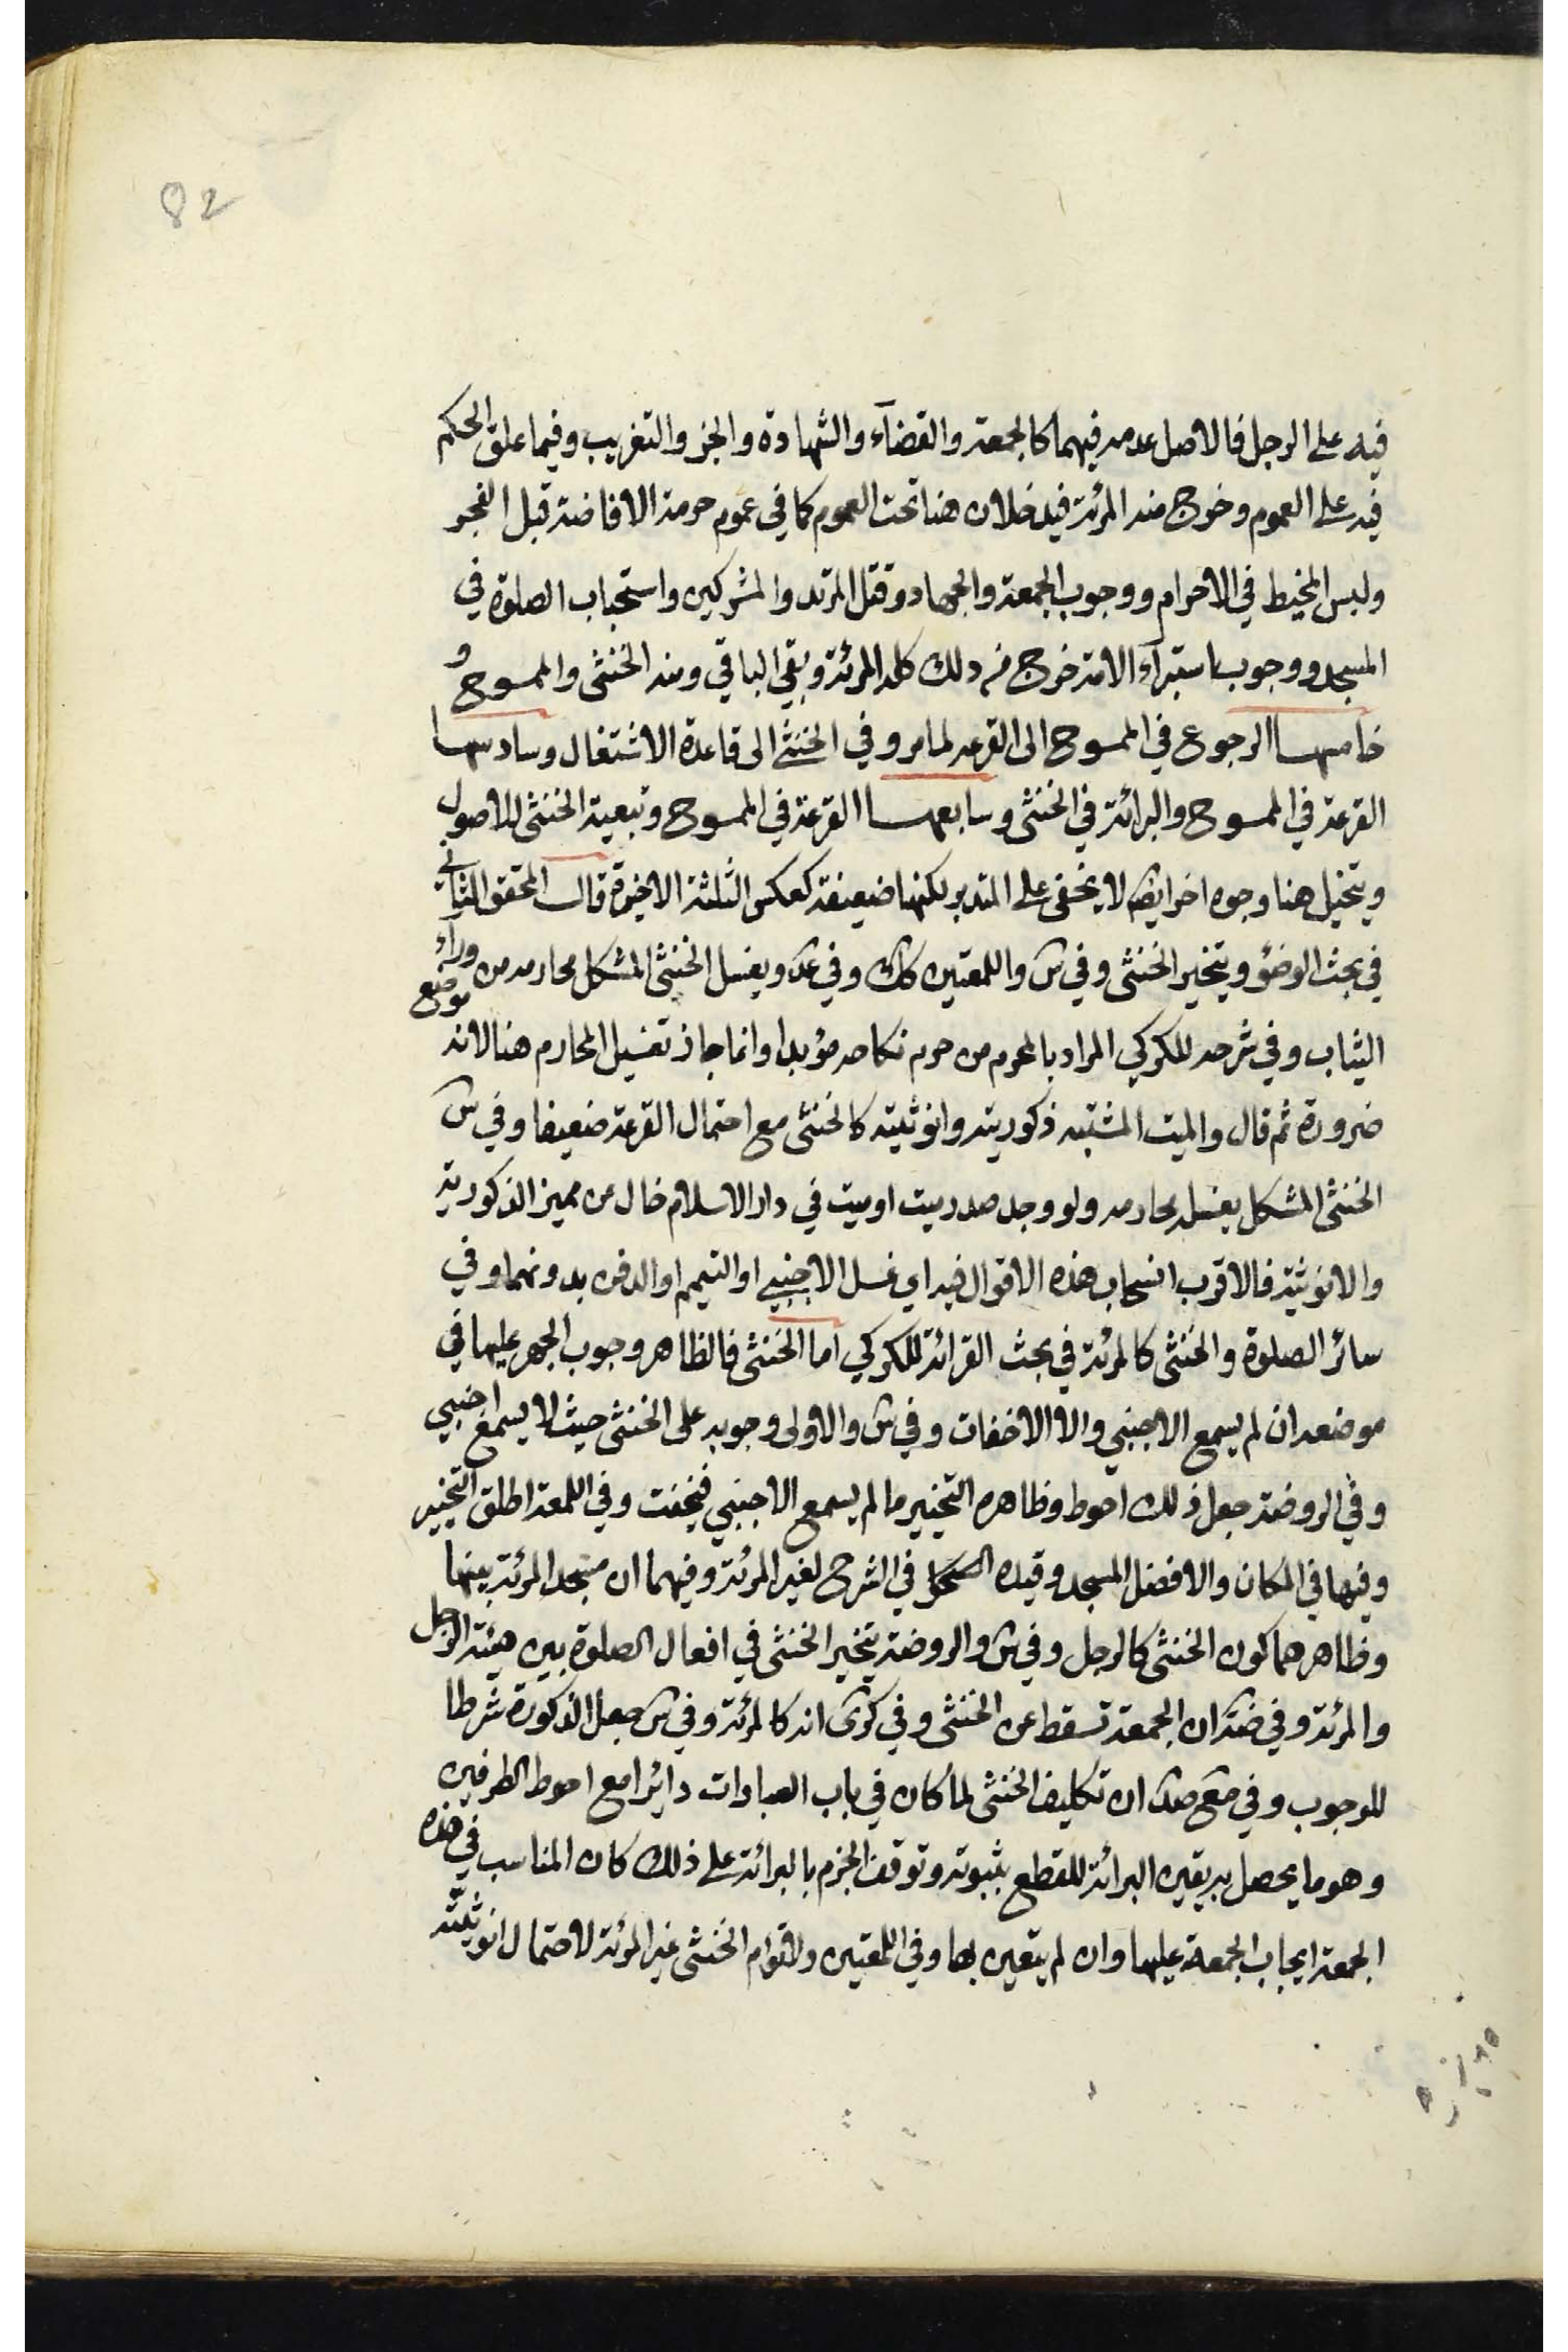 82
فيه على الرجل فالاصل عدمه فيهما كالجمعة والقضآء والشهادة والجز والتغريب وفيما علق الحكم
فيه على العموم وخرج منه المرئة فيدخلان هنا تحت العموم كما في عموم حرمة الافاضة قبل الفجر
ولبس المخيط في الاحرام ووجوب الجمعة والجهاد وقتل المرتد والمشركين واستحباب الصلوة في
المسجد ووجوب استبرآء الامة خرج من ذلك كله المرئة وبقي الباقي ومنه الخنثى والممسوح و
خامسها الرجوع في الممسوح الى القرعه لما مر وفي الخنثى الى قاعدة الاشتغال وسادسها
القرعة في الممسوح والبرائة في الخنثى وسابعها القرعة في الممسوح وتبعية الخنثى للاصول
ويتخيل هنا وجوه اخر ايضا لا يخفى على المتدبر لكنها ضعيفة كعكس الثلثة الاخيرة قال المحقق الثاني
في بحث الوضؤ ويتخير الخنثى وفي س واللمعتين كك وفي عد ويغسل الخنثى المشكل محارمه من وراء
الثياب وفي شرحه للكركي المراد بالمحرم من حرم نكاحه مؤبدا وانما جاز تغسيل المحارم هنا لانه موضع
ضرورة ثم قال والميت المشتبه ذكوريته وانوثيته كالخنثى مع احتمال القرعة ضعيفا وفي س
الخنثى المشكل يغسله محارمه ولو وجد صدر ميت او ميت في دار الاسلام خال من مميز الذكورية
والانوثية فالاقرب انسحاب هذه الاقوال فيه اي غسل الاجنبي او التيمم او الدفن بدونهما وفي
سائر الصلوة والخنثى كالمرئة في بحث القرائة للكركي اما الخنثى فالظاهر وجوب الجهر عليها في
موضعه ان لم يسمع الاجنبي والا الاخفات وفي س والاولى وجوبه على الخنثى حيث لا يسمع اجنبي
وفي الروضة جعل ذلك احوط وظاهره التخيير ما لم يسمع الاجنبي فيخفت وفي اللمعة اطلق التخيير
وفيها في المكان والافضل المسجد وقيده في الشرح لغير المرئة وفيهما ان مسجد المرئة بيتها
وظاهرهما كون الخنثى كالرجل وفي س والروضة يتخير الخنثى في افعال الصلوة بين هيئة الرجل
والمرئة وفي ضة ان الجمعة تسقط عن الخنثى وفي كرى انه كالمرئة وفي س جعل الذكورة شرطا
للوجوب وفي مع صد ان تكليف الخنثى لما كان في باب العبادات دائرا مع احوط الطرفين
وهو ما يحصل به يقين البرائة للقطع بثبوته وتوقف الجزم بالبرائة على ذلك كان المناسب في هذه
الجمعة ايجاب الجمعة عليها وان لم يتعين بها وفي اللمعتين ولا تؤم الخنثى غير المرئة لاحتمال انوثيته